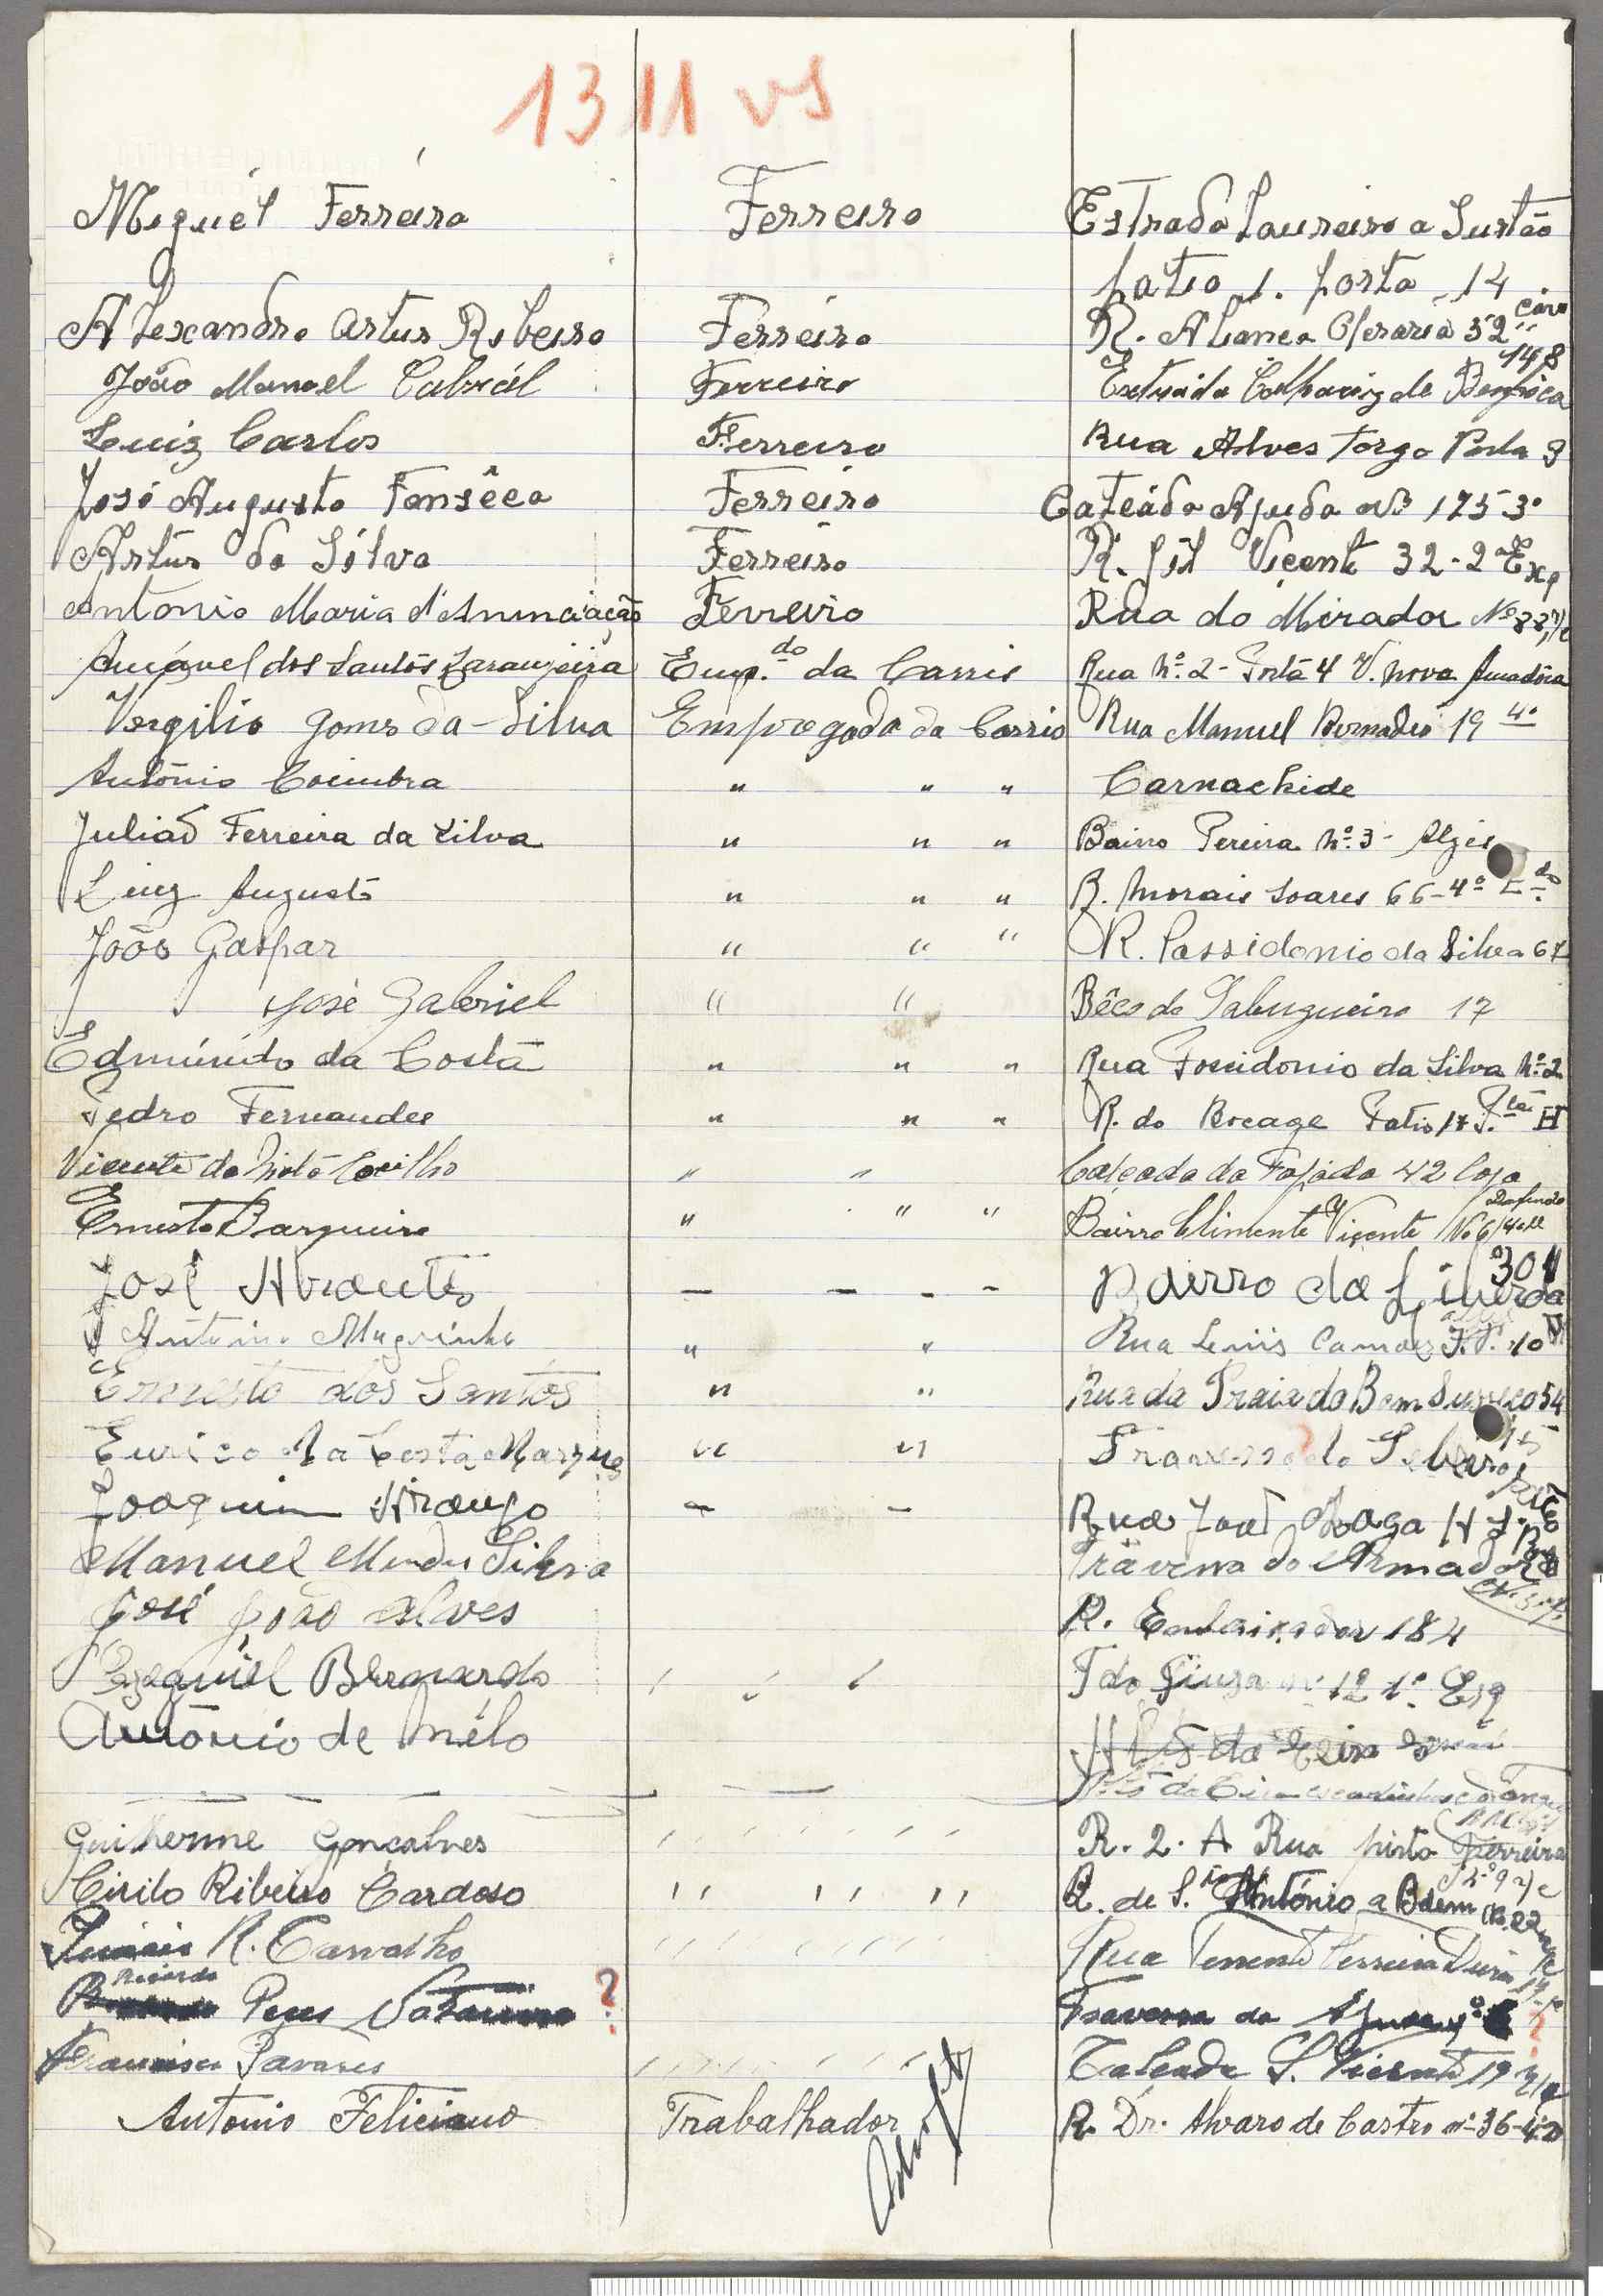 1311 vs
Miguél Ferreira Ferreiro Estrada Loureiro a Sustão
patio 1. porta 14
Alexandro Artur Ribeiro Ferreiro R. Aliança Operaria 52 cave
João Manoel Cabrál Ferreiro Estrada Calhariz de Benfica 148
Luiz Carlos Ferreiro Rua Alves Torgo Porta 3
José Augusto Fonsêca Ferreiro Ajuda nº 175-3º
Artur da Silva Ferreiro R. Gil Vicente 32-2º Esq
Antonio Maria d'Anunciação Ferreiro Rua do Mirador Nº
dos Santos Laranjeira Emp.do da Carris Rua nº 2 - Porta 4 V. Nova Amadóra
Vergilio Gomes da-Silva Empregado da Carris Rua Manuel Bernardes 19 4º
António Coimbra " " " Carnachide
Julião Ferreira da Silva " " " Bairro Pereira nº 3 - Algés
Luiz Augusto " " " R. Morais Soares 66-4º Edo
João Gaspar " " " R. Possidonio da Silva 67
José Gabriel " " Bêco do Sabugueiro 17
Edmundo da Costa " " " Rua Possidonio da Silva nº 2
Pedro Fernandes " " " R. do Bocage Patio 17 P.ta H
Vicente da Coelho " " Calçada da Tapada 42 Loja
Ernesto Barqueiro " " " Bairro Climente Vicente Nº 6 Dafundo
José Abrantes - - - - Bairro da Liberda 301
António " " Rua Luiis Camões 10
Ernesto dos Santos " " Rua da Praia do Bom Sucesso 54
Eurico da Costa Marques " " Travessa do
Joaquim Araujo - - Rua José
Manuel Mendes Silva Travessa do Armador
José João Alves R. Embaixador 184
Ezequiel Bernardo T do Fiuza nº 12 1º Esq
António de Mélo
Guilherme Gonçalves " " " R. 2. A Rua pinto Ferreira
Cirilo Ribeiro Cardoso " " " R. de S.to António a Belem nº 22
R. Carvalho " " " Rua Tenente Ferreira Durão
Ricardo Peres ? Travessa da
Francisco Tavares " " " Calçada S. Vicente 19
Antonio Feliciano Trabalhador R. Dr. Alvaro de Castro nº 36-4º D